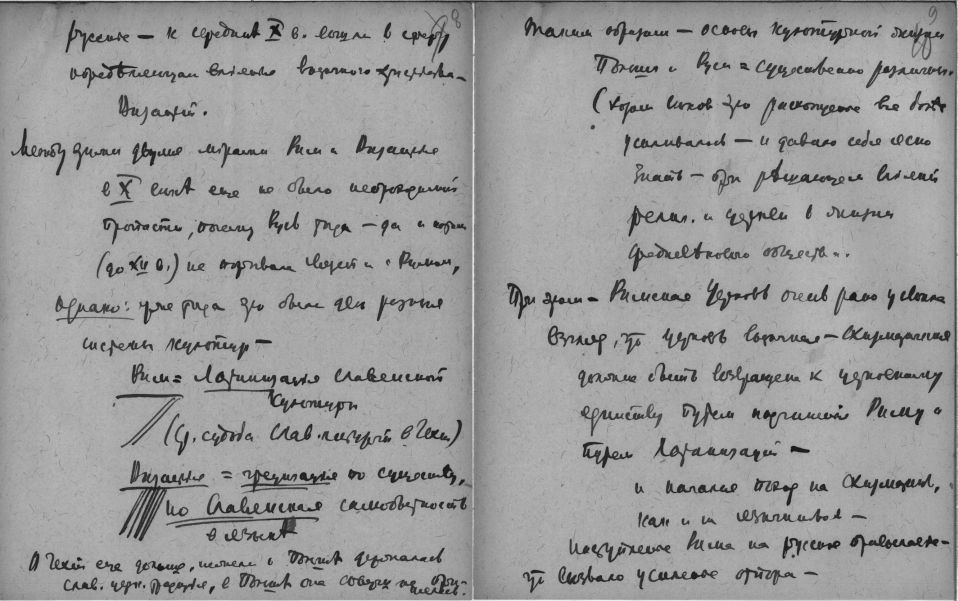 8
русские — к середине X в. вошли в сферу
определяющего влияния восточного христианства —
Византии.
Между этими двумя мирами Рим и Византия
в X веке еще не было непроходимой
пропасти, почему Русь тогда — да и потом
(до XII в.) не порывала связи с Римом,
однако: уже тогда это были две разные
системы культур —
Рим = Латинизация славянской
культуры
(ср. судьба слав. литургии в Чехии)
Византия = грецизация по существу,
но Славянская самобытность
в языке
В Чехии еще дольше, нежели в Польше держалась
слав. церк. традиция, в Польше она совсем не
9
Таким образом — основы культурной жизни
Польши и Руси = существенно различны.
(ходом веков это расхождение все более
усиливалось — и давало себя ясно
знать — при решающем влиянии
религ. и церкви в жизни
средневекового общества.
При этом — Римская Церковь очень рано усвоила
взгляд, что церковь восточная — схизматическая
должна быть возвращена к церковному
единству путем подчинения Риму и
путем Латинизации —
и начался поход на схизматиков,
как и на язычников —
Наступление Рима на русское православие —
что вызвало усиление отпора —